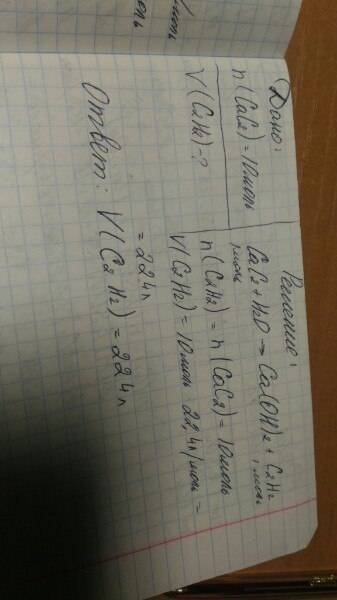 Дано:
n(CaC2) = 10 моль
V(C2H2) - ?
Решение:
CaC2 + H2O → Ca(OH)2 + C2H2
1 моль 1 моль
n(C2H2) = n(CaC2) = 10 моль
V(C2H2) = 10 моль · 22,4 л/моль =
= 224 л
Ответ: V(C2H2) = 224 л
моль